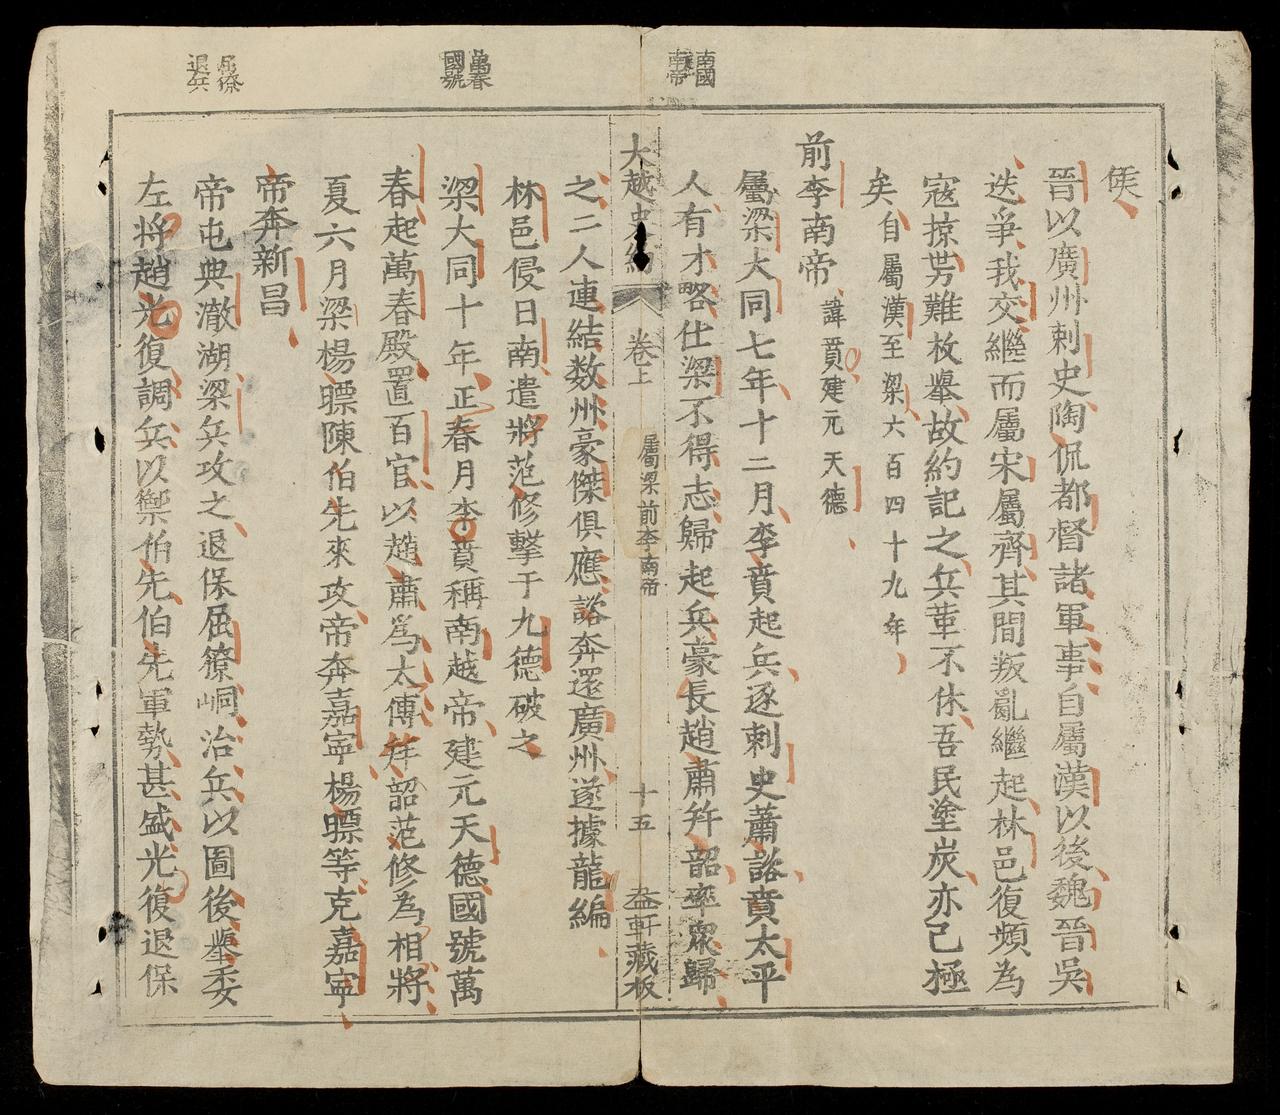 南國
南帝
萬春
國號
屈獠
退兵
矦
晉以廣州刺史陶侃都督諸軍事自屬漢以後魏晉吳
迭爭我交繼而屬宋屬齊其間叛亂繼起林邑復頻為
寇掠勞難枚舉故約記之兵革不休吾民塗炭亦已極
矣自屬漢至梁六百四十九年
前李南帝 諱賁建元天德
屬梁大同七年十二月李賁起兵逐刺史蕭諮賁太平
人有才略仕梁不得志歸起兵豪長趙肅并韶率眾歸
大越史約 卷上 屬梁前李南帝 十五 益軒藏板
之二人連結数州豪傑俱應諮奔還廣州遂據龍編
林邑侵日南遣將范修擊于九德破之
梁大同十年正春月李賁稱南越帝建元天德國號萬
春起萬春殿置百官以趙肅為太傅并韶范修為相將
夏六月梁楊瞟陳伯先來攻帝奔嘉寧楊瞟等克嘉寧
帝奔新昌
帝屯典澈湖梁兵攻之退保屈獠峒治兵以圖後舉委
左將趙光復調兵以禦伯先伯先軍勢甚盛光復退保